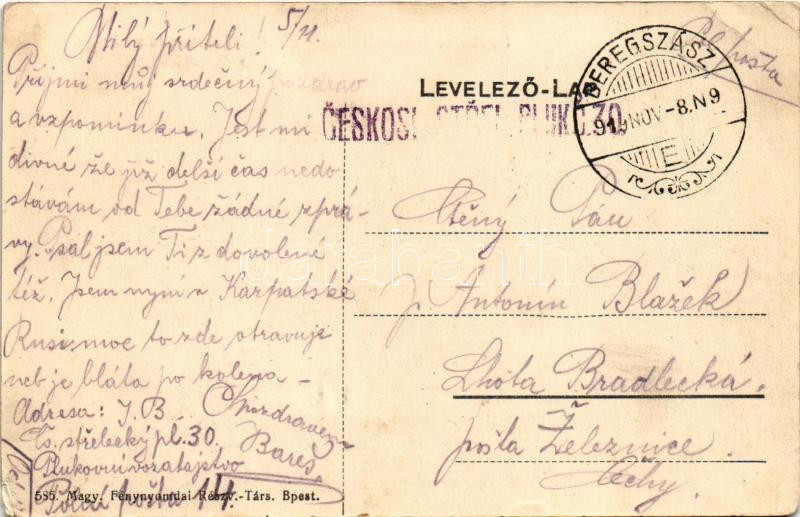 Milý příteli! 5/11.
Přijmi můj srdečný pozdrav
a vzpomínku. Jest mi
divné že již delší čas nedo
stávám od Tebe žádné zprá-
vy. Psal jsem Ti z dovolené
též. Jsem nyní v Karpatské
Rusi moc to zde otravuje
neb je bláta po kolena –
Adresa: J. B.
S pozdravem
Bareš
Čs. střelecký pl. 30.
Plukovní vozatajstvo
Polní pošta 14.
585. Magy. Fénynyomdai Részv.-Társ. Bpest.
LEVELEZŐ-LAP
ČESKOSL. STŘEL. PLUK Č. 30.
BEREGSZÁSZ
919 NOV -8. N 9
E
Pol pošta
Ctěný Pán
p. Antonín Blažek
Lhota Bradlecká.
pošta Železnice.
Čechy.
darabanth